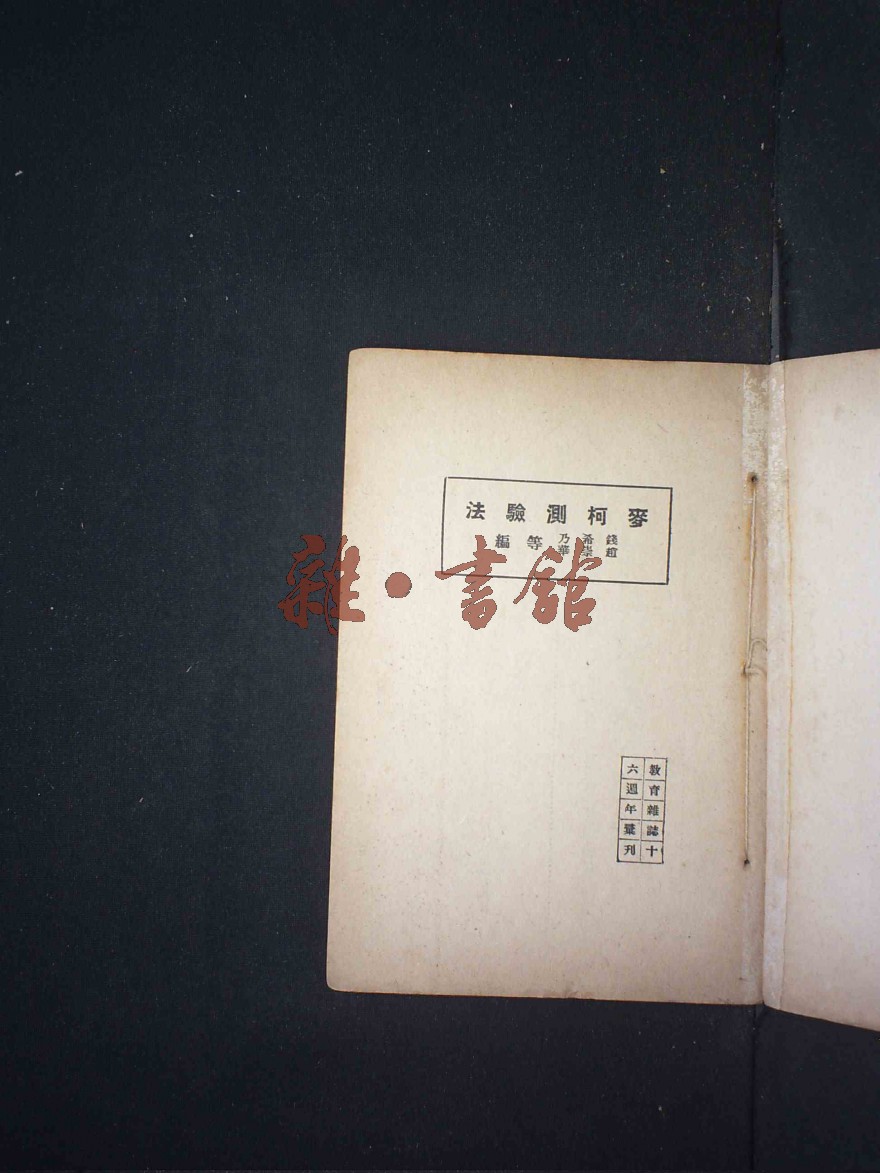 麥柯測驗法
錢希乃
趙華
等編
雜·書館
教育雜誌十
六週年彙刊